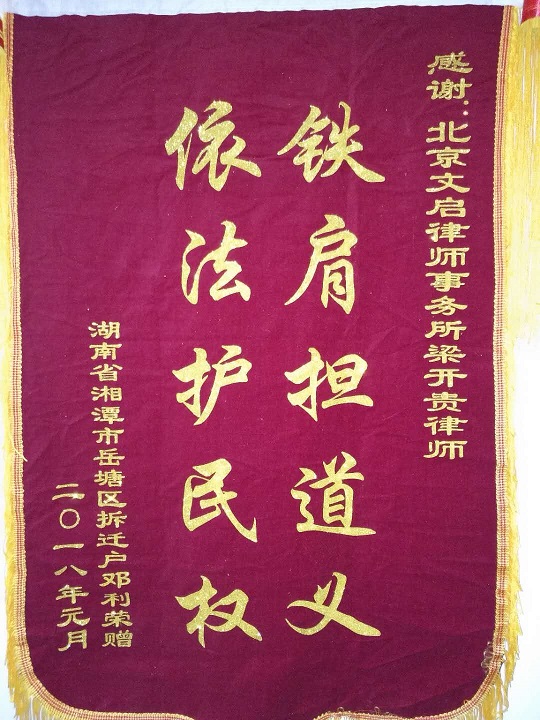 感谢：北京文启律师事务所梁开贵律师
铁肩担道义
依法护民权
湖南省湘潭市岳塘区拆迁户邓利荣赠
二〇一八年元月